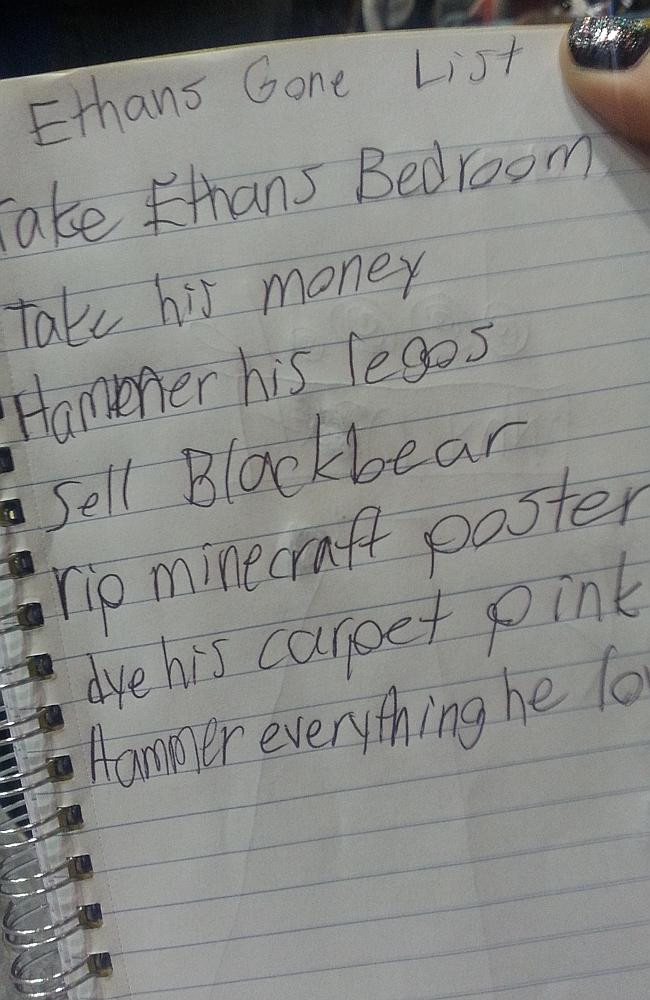 Ethans Gone List
Take Ethans Bedroom
Take his money
Hammer his legos
Sell Blackbear
rip minecraft poster
dye his carpet pink
Hammer everything he